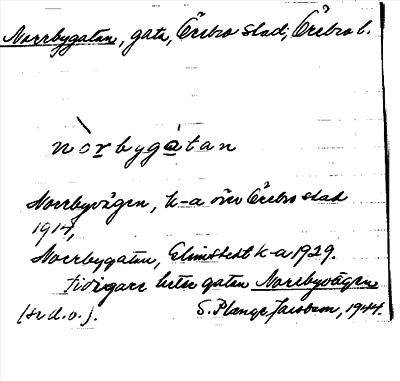 Norrbygatan, gata, Örebro stad, Örebro l.
nòrbygátan
Norrbyvägen, k-a över Örebro stad
1914,
Norrbygatan, Elmstedt k-a 1929.
Tidigare hette gatan Norrbyvägen
(se d.o.).
S. Plange Jacobson, 1944.